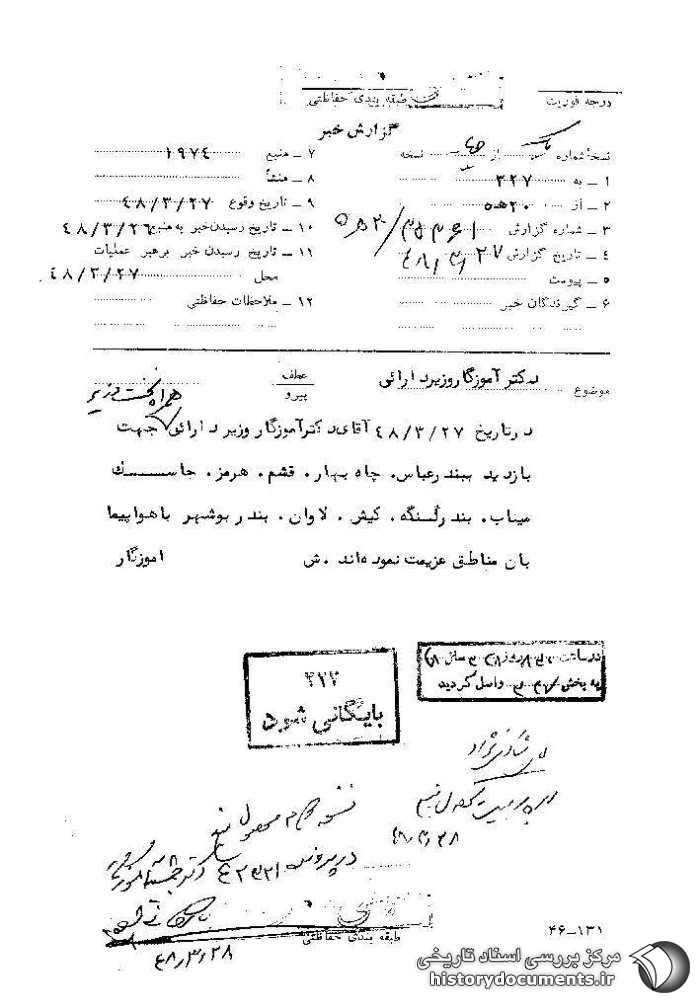 طبقه بندی حفاظتی
درجه فوریت
گزارش خبر
نسخه شماره یک از نسخه
۱ – به ۳۲۷
۲ – از ۲۰ه۵
۳ – شماره گزارش
۴ – تاریخ گزارش ۴۸/۳/۲۷
۵ – پیوست
۶ – گیرندگان خبر
۷ – منبع ۱۹۷۴
۸ – منشأ
۹ – تاریخ وقوع ۴۸/۳/۲۷
۱۰ – تاریخ رسیدن خبر به منبع ۴۸/۳/۲۶
۱۱ – تاریخ رسیدن خبر برهبر عملیات
محل ۴۸/۳/۲۷
۱۲ – ملاحظات حفاظتی
موضوع دکتر آموزگار وزیر دارائی
عطف
پیرو
همراه نخست وزیر
در تاریخ ۴۸/۳/۲۷ آقای دکتر آموزگار وزیر دارائی جهت
بازدید ببندرعباس. چاه بهار. قشم. هرمز. جاسک
میناب. بندرلنگه. کیش. لاوان. بندر بوشهر با هواپیما
بان مناطق عزیمت نموده‌اند .ش آموزگار
در ساعت روز
به بخش واصل گردید
۳۲۲
بایگانی شود
۴۸/۳/۲۸
نسخه
در پرونده
۴۸/۳/۲۸
طبقه بندی حفاظتی
۴۶–۱۳۱
مرکز بررسی اسناد تاریخی
historydocuments.ir